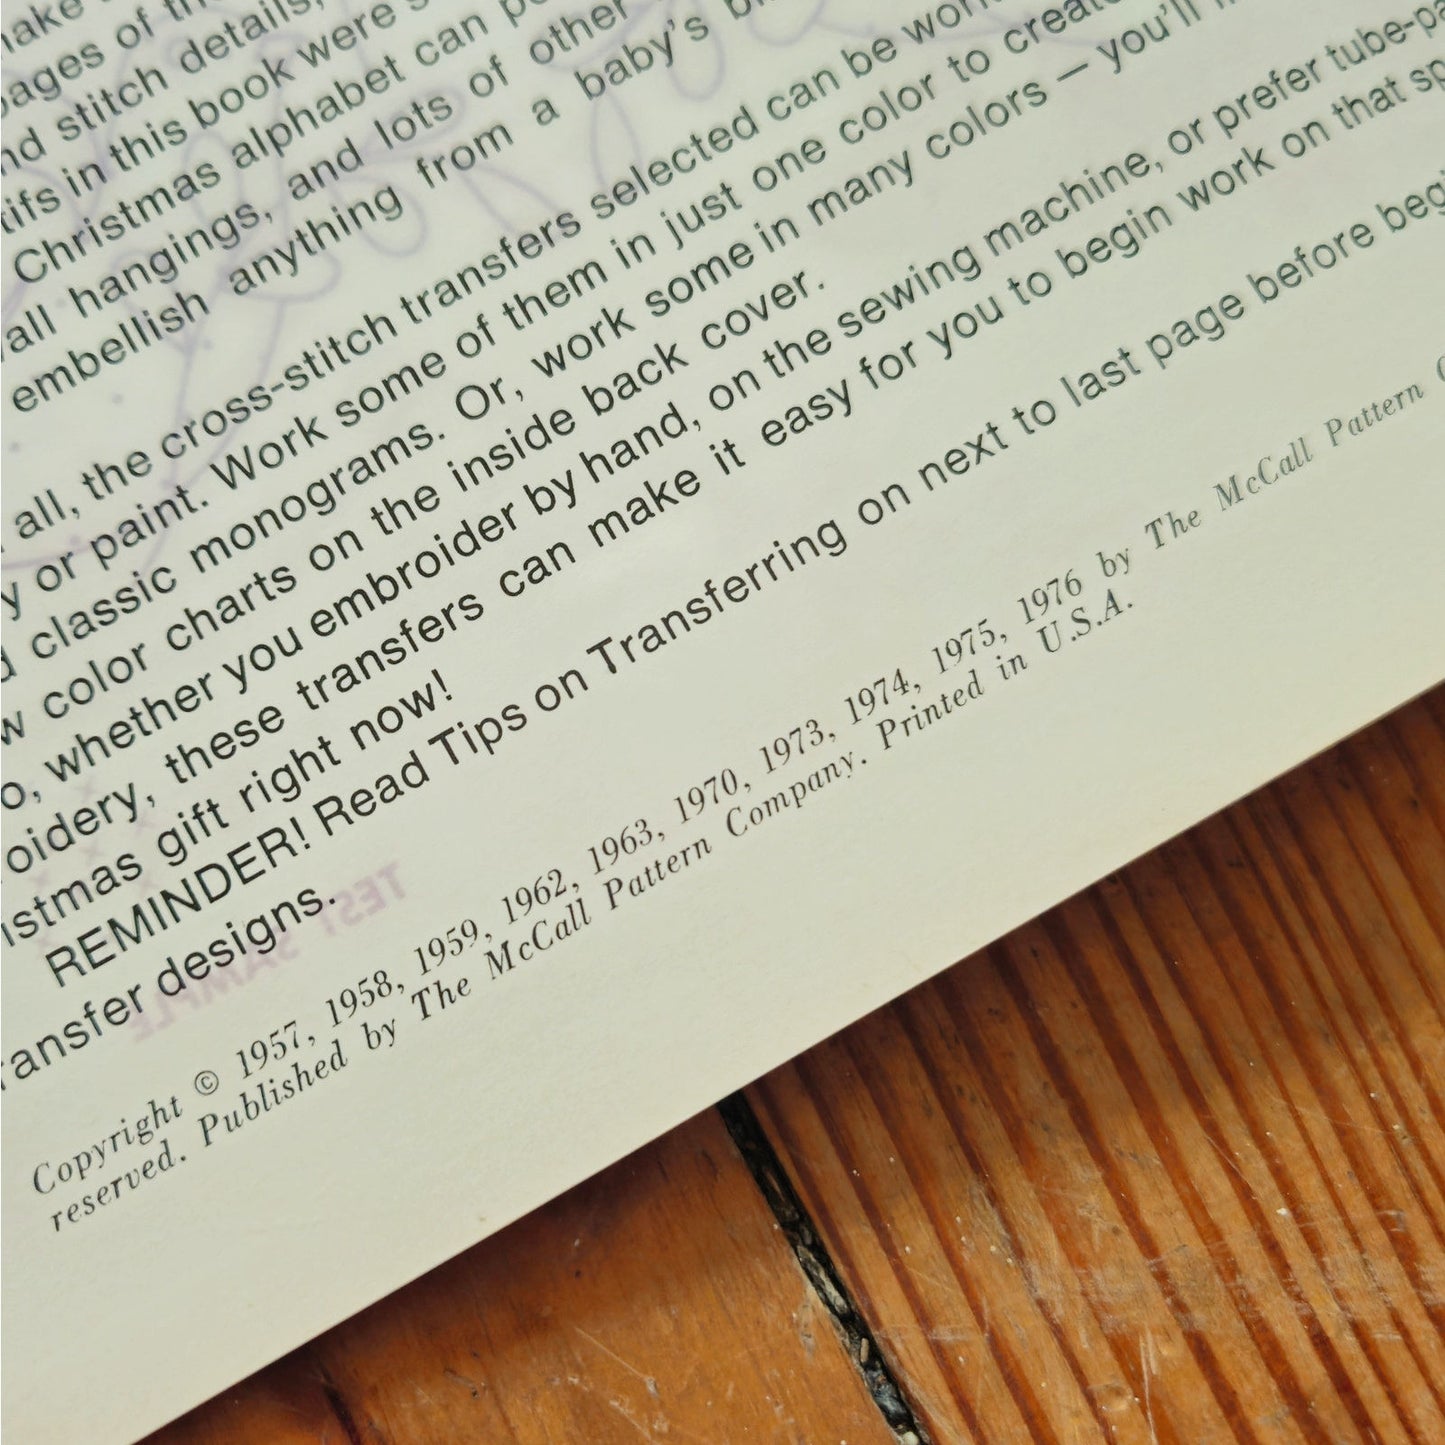 make
pages of the
and stitch details,
tifs in this book were s
Christmas alphabet can pe
all hangings, and lots of other
embellish anything from a baby's bi
all, the cross-stitch transfers selected can be work
y or paint. Work some of them in just one color to create
d classic monograms. Or, work some in many colors — you'll
w color charts on the inside back cover.
o, whether you embroider by hand, on the sewing machine, or prefer tube-pa
oidery, these transfers can make it easy for you to begin work on that sp
istmas gift right now!
REMINDER! Read Tips on Transferring on next to last page before begi
ransfer designs.
TEST SAMPLE
Copyright © 1957, 1958, 1959, 1962, 1963, 1970, 1973, 1974, 1975, 1976 by The McCall Pattern C
reserved. Published by The McCall Pattern Company. Printed in U.S.A.